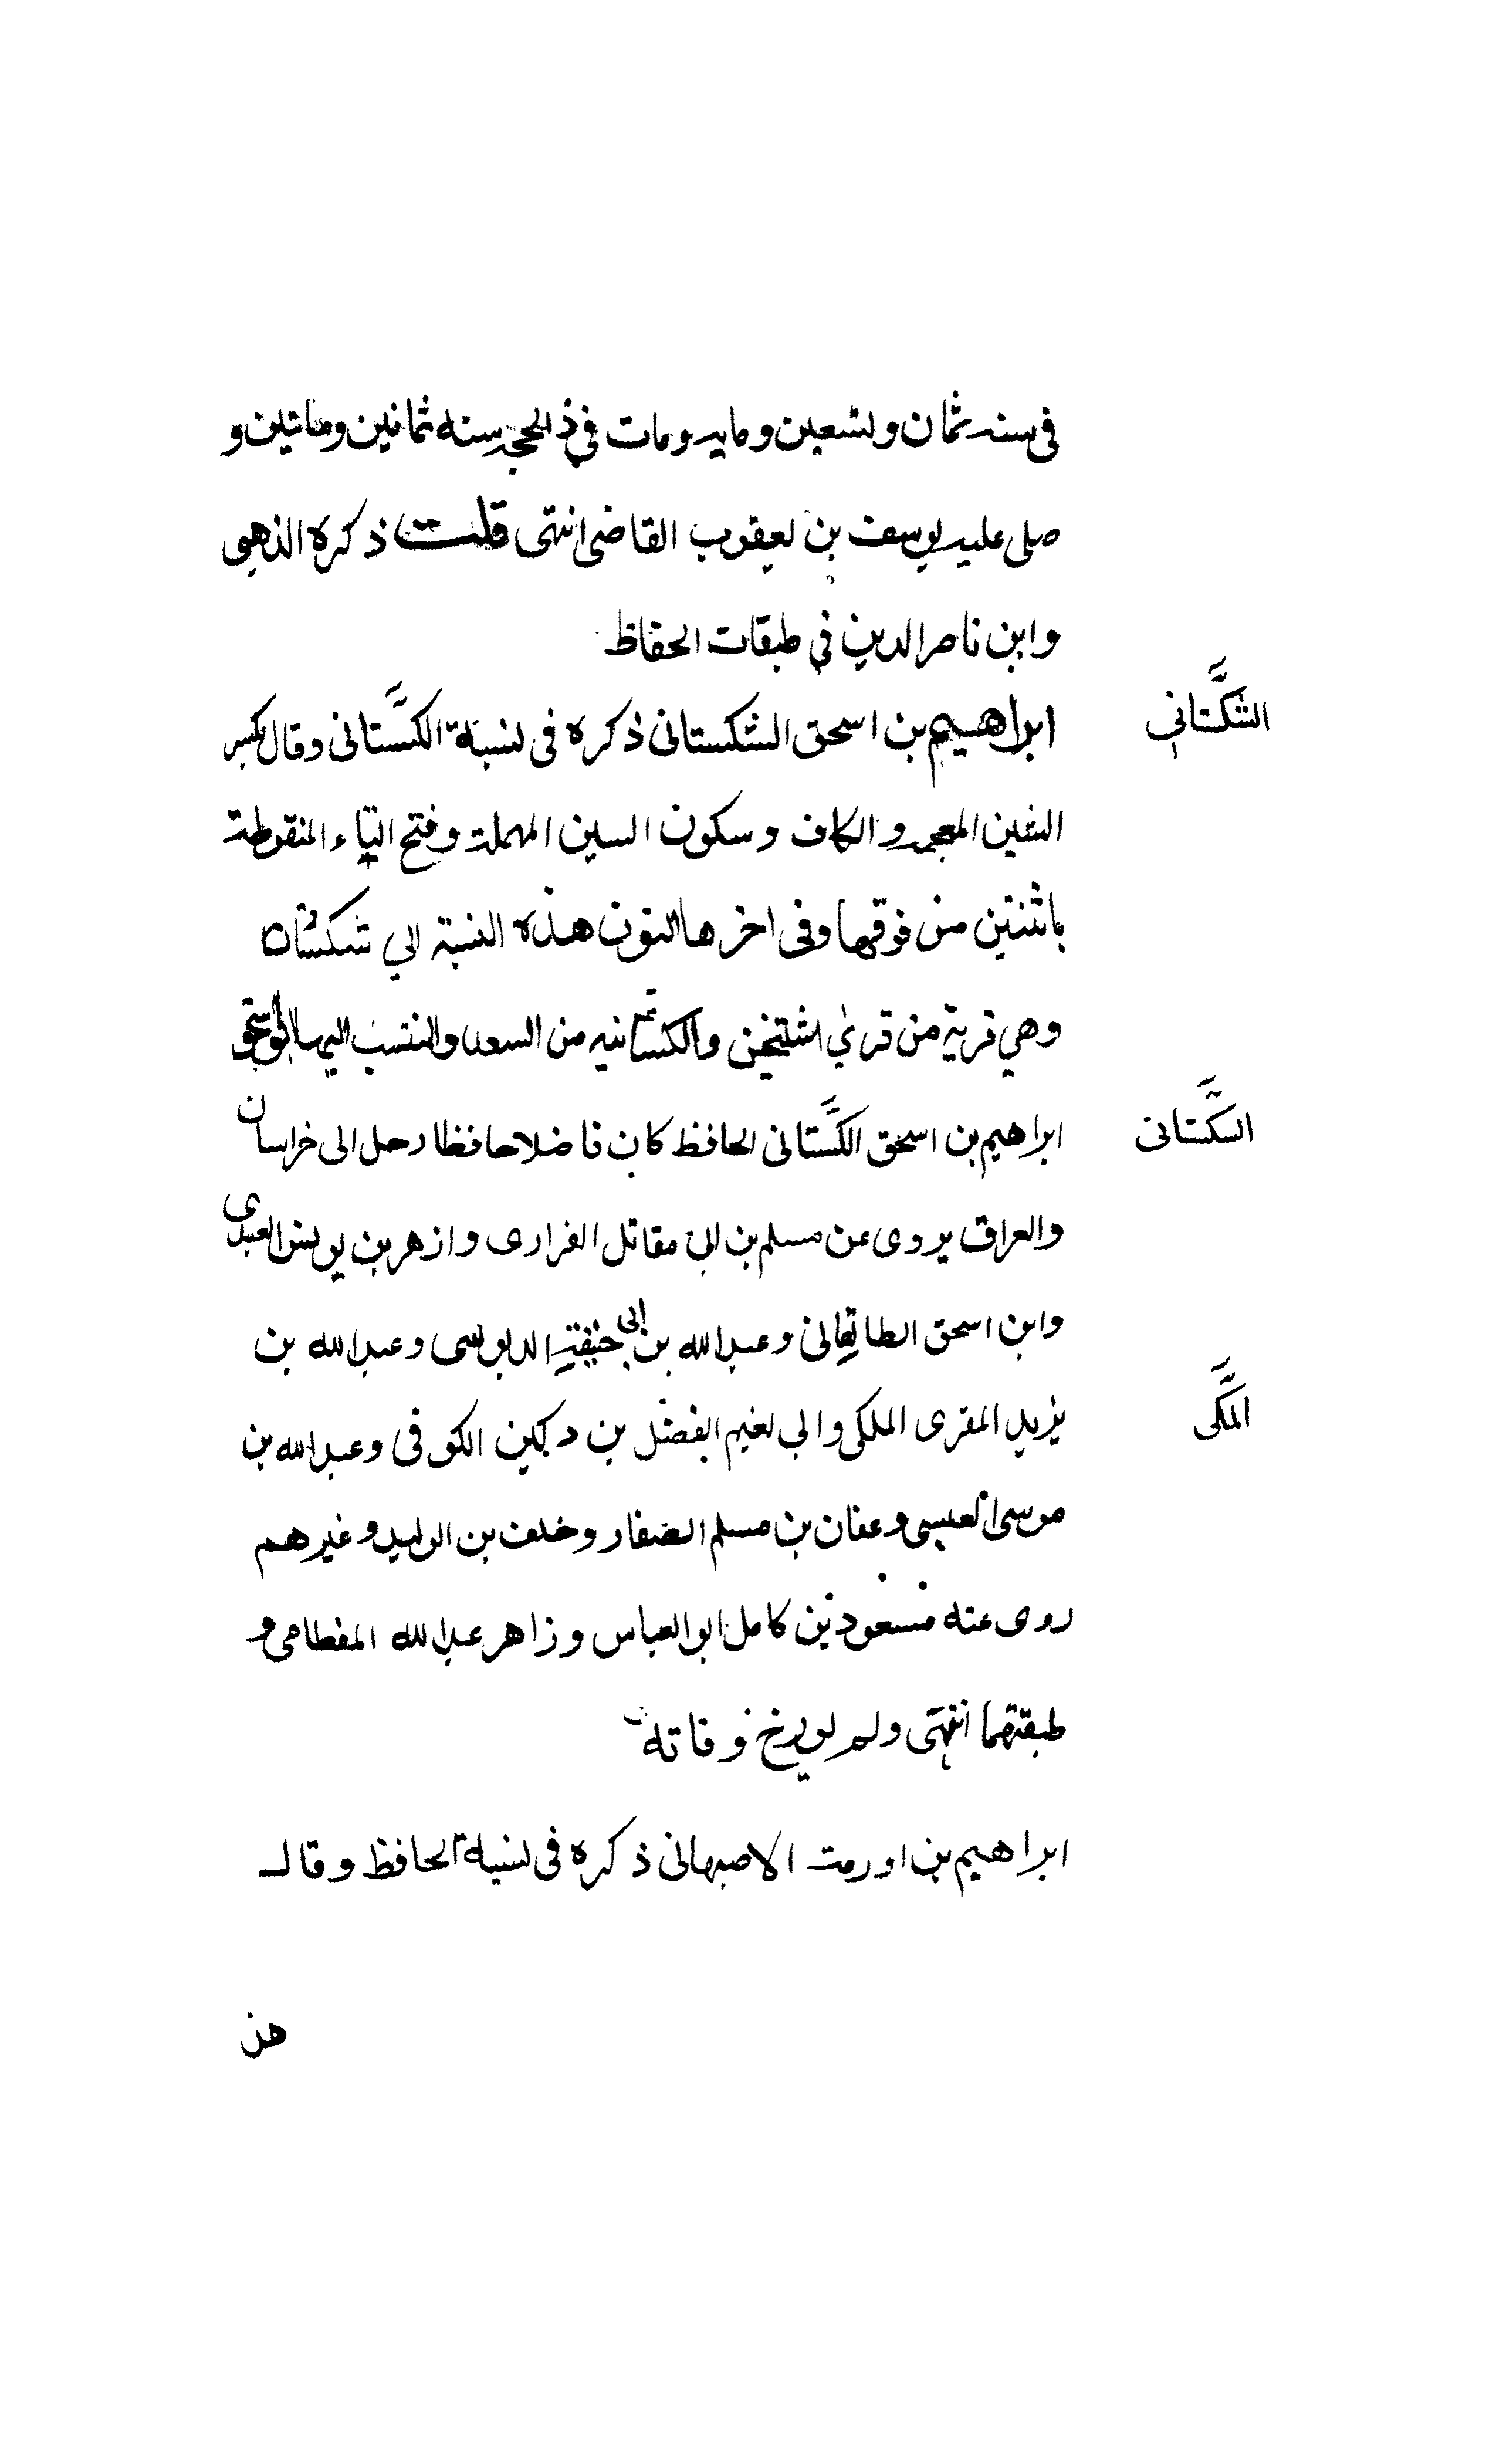 في سنه ثمان وتسعين ومايه ومات في ذالحجه سنه ثمانين وماتين و
صلى عليه يوسف بن يعقوب القاضى انتهى قلت ذكره الذهبى
وابن ناصر الدين في طبقات الحفاظ
الشكستاني
ابراهيم بن اسحق الشكستانى ذكره فى نسبة الكستانى وقال بكسر
الشين المعجمه والكاف وسكون السين المهملة وفتح التاء المنقوطة
باثنتين من فوقها وفى اخرها النون هذه النسبة الي شكستان
وهي قرية من قري اشتيخن والكستانيه من السعد والمنتسب اليها ابواسحق
السكستانى
ابراهيم بن اسحق الكستانى الحافظ كان فاضلا حافظا رحل الى خراسان
والعراق يروى عن مسلم بن ابى مقاتل الفرارى وازهر بن يونس العبدى
وابن اسحق الطالقانى وعبد الله بن ابي حنيفة الدبوسى وعبد الله بن
المكى
يزيد المقرى الملكى وابى نعيم الفضل بن دكين الكوفى وعبد الله بن
موسى العبسى وعفان بن مسلم الصفار وخلف بن الوليد وغيرهم
روى عنه مسعود بن كامل ابو العباس وزاهر عبد الله و
طبقتهما انتهى ولم يورخ وفاته
ابراهيم بن اورمة الاصبهانى ذكره فى نسبة الحافظ وقال
هن